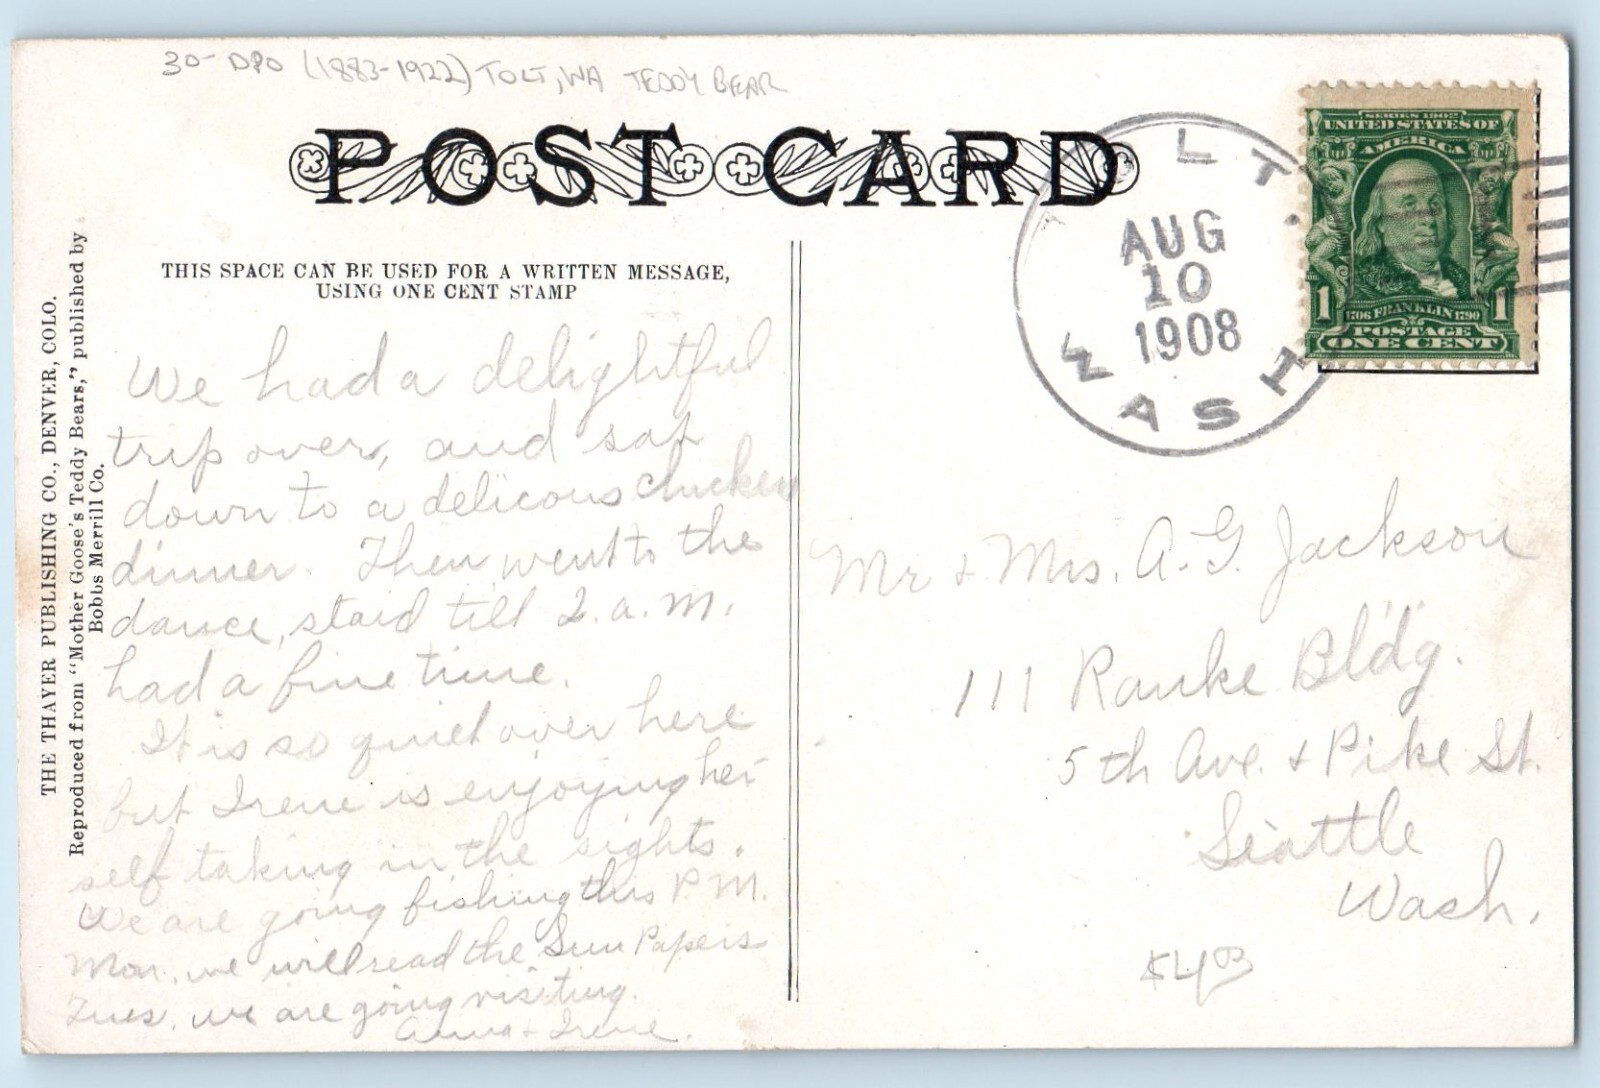 30- DPO (1883-1922) TOLT, WA TEDDY BEAR
POST CARD
THIS SPACE CAN BE USED FOR A WRITTEN MESSAGE,
USING ONE CENT STAMP
THE THAYER PUBLISHING CO., DENVER, COLO.
Reproduced from "Mother Goose's Teddy Bears," published by
Bobbs Merrill Co.
We had a delightful
trip over, and sat
down to a delicous chicken
dinner. Then went to the
dance, staid till 2. a. m.
had a fine time.
It is so quiet over here
but Irene is enjoying her
self taking in the sights.
We are going fishing this P.M.
Mon. we will read the Sun Papers
Tues. we are going visiting.
Anna & Irene.
LT.
AUG
10
1908
WASH
SERIES 1902
UNITED STATES OF
AMERICA
1 1706 FRANKLIN 1790 1
POSTAGE
ONE CENT
Mr & Mrs. A. G. Jackson
111 Ranke Bldg.
5th Ave. & Pike St.
Seattle
Wash.